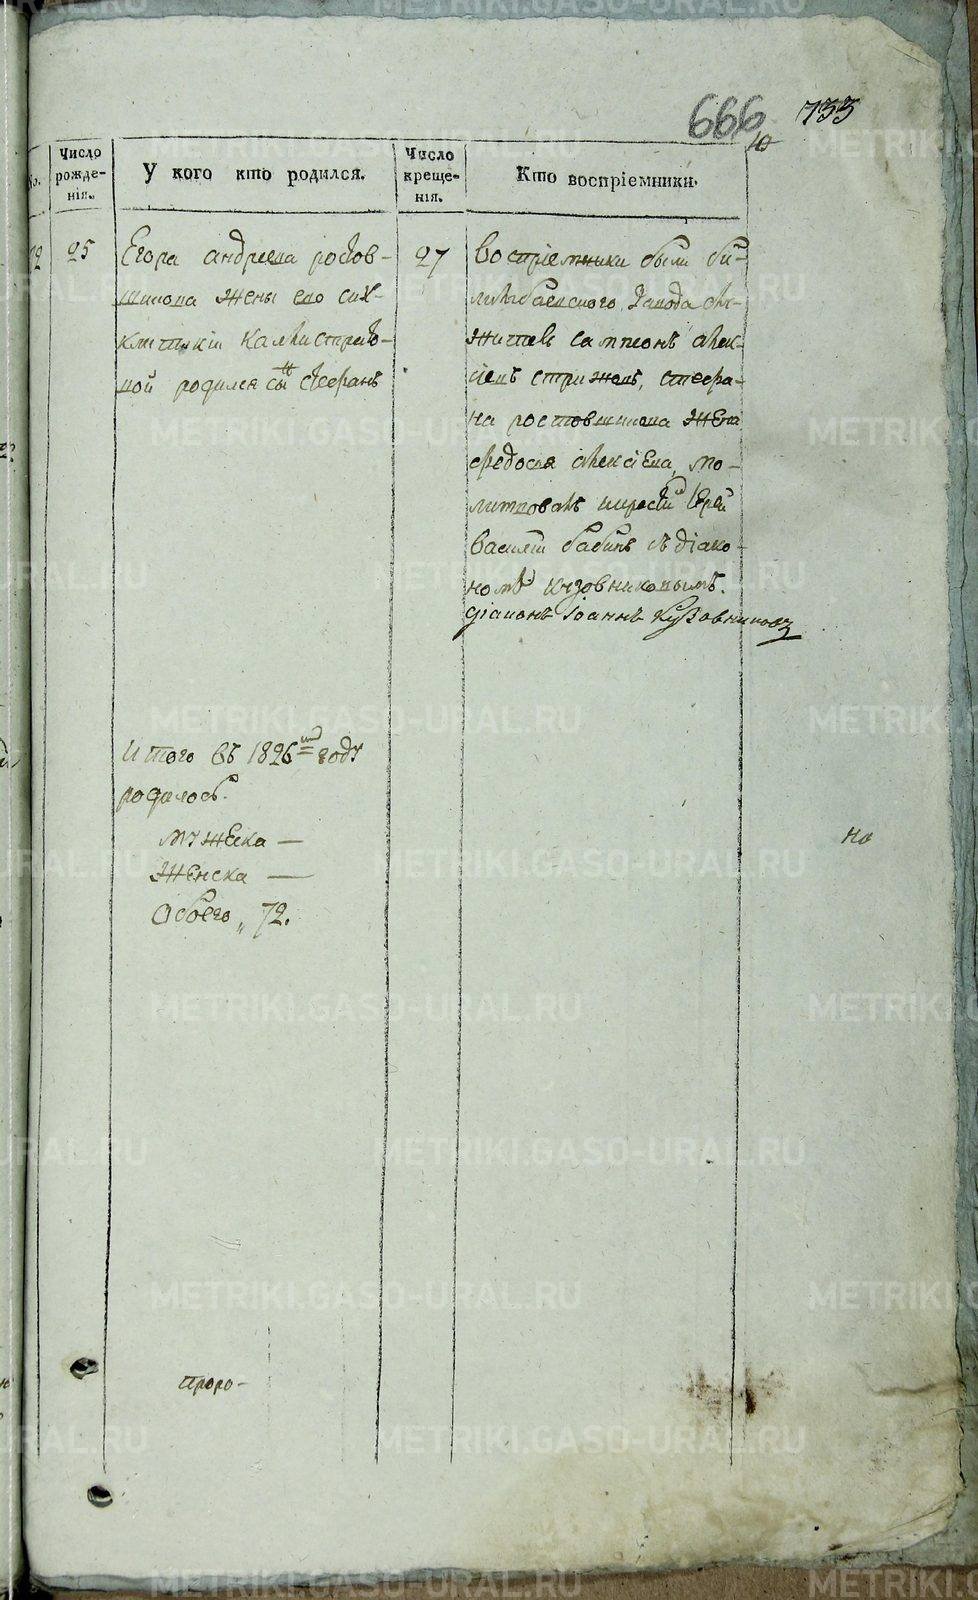 666 733
10
Число рожде-нія.
У кого кто родился.
Число креще-нія.
Кто воспріемники.
25
Егора андреева ростов-
щикова жены его сиκ-
клитикіи Каллистрато-
вой родился сынъ стефанъ
27
Воспріемники были би-
лимбаевскаго завода
жители алек-
стефа-
на ростовщикова жена
федосья алексіева, мо-
литвовалъ и крестилъ іерей
василій бабинъ съ діако-
номъ кузовниковымъ.
діаконъ Іоаннъ Кузовниковъ
Итого въ 1826мъ году
родилось.
мужеска —
женска —
Обоего „ 72.
но
проро-
METRIKI.GASO-URAL.RU